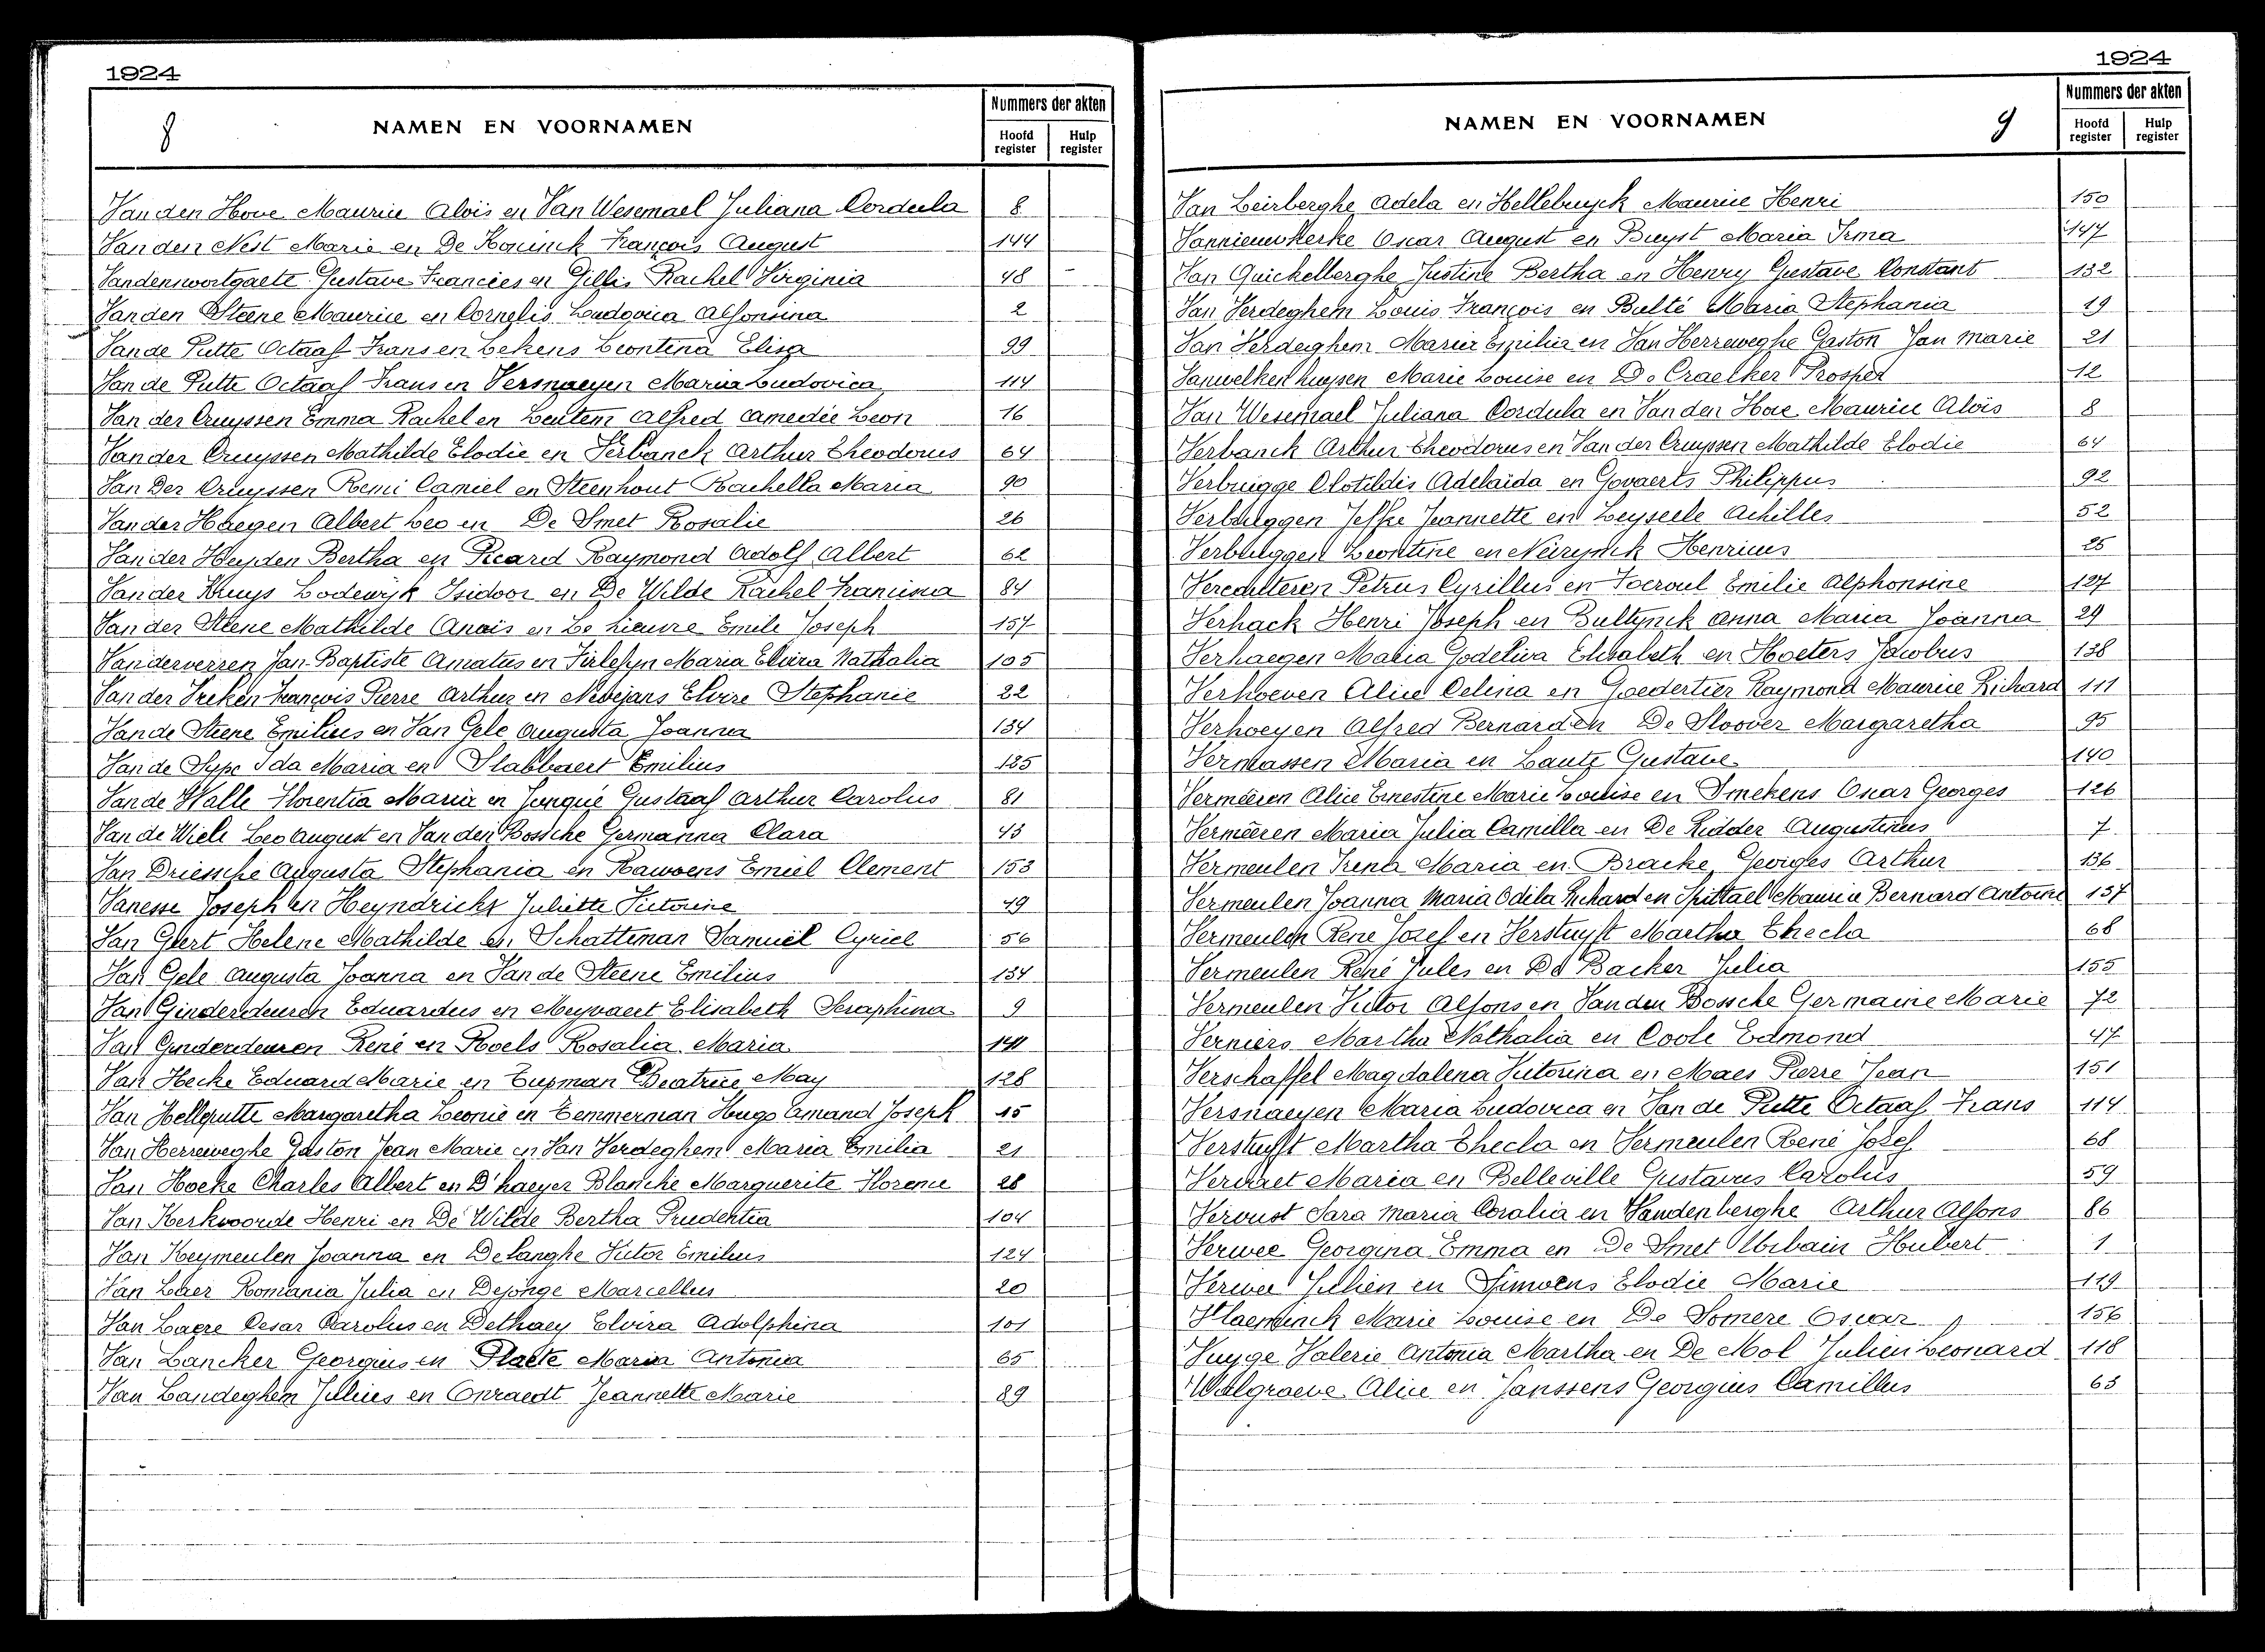 1924
8
NAMEN EN VOORNAMEN
Nummers der akten
Hoofd register
Hulp register
Van den Hove Maurice Aloïs en Van Wesemael Juliana Cordula 8
Van den Nest Marie en De Koninck François August 144
Vandenwortgaete Gustave Francies en Gillis Rachel Virginia 48
Van den Steene Maurice en Cornelis Ludovica Alfonsina 2
Van de Putte Octaaf Frans en Lekens Leontina Elisa 99
Van de Putte Octaaf Frans en Versnaeyen Maria Ludovica 114
Van der Cruyssen Emma Rachel en Leutem Alfred Amedée Leon 16
Van der Cruyssen Mathilde Elodie en Verbanck Arthur Theodorus 64
Van Der Cruyssen Remi Camiel en Steenhout Rachella Maria 90
Van der Haegen Albert Leo en De Smet Rosalie 26
Van der Heyden Bertha en Picard Raymond Adolf Albert 62
Van der Kruys Lodewijk Isidoor en De Wilde Rachel Francisca 84
Van der Steene Mathilde Anaïs en Le Lieuvre Emile Joseph 157
Vanderverren Jan-Baptiste Amatus en Tirlefyn Maria Elvira Nathalia 105
Van der Vreken François Pierre Arthur en Nevejans Elvire Stephanie 22
Van de Steene Emilius en Van Gele Augusta Joanna 134
Van de Sype Ida Maria en Slabbaert Emilius 135
Van de Walle Florentia Maria en Jonqué Gustaaf Arthur Carolus 81
Van de Wiele Leo August en Van den Bossche Germanna Clara 43
Van Driessche Augusta Stephania en Rawoens Emiel Clement 153
Vanesse Joseph en Heyndrickx Juliette Victorine 49
Van Geert Helene Mathilde en Schatteman Samuël Cyriel 56
Van Gele Augusta Joanna en Van de Steene Emilius 134
Van Ginderdeuren Eduardus en Meyvaert Elisabeth Seraphina 9
Van Ginderdeuren René en Roels Rosalia Maria 141
Van Hecke Eduard Marie en Tupman Beatrice May 128
Van Helleputte Margaretha Leonie en Temmerman Hugo Amand Joseph 15
Van Herreweghe Gaston Jean Marie en Van Verdeghem Maria Emilia 21
Van Hoeke Charles Albert en D'haeyer Blanche Marguerite Florence 28
Van Kerkvoorde Henri en De Wilde Bertha Prudentia 104
Van Keymeulen Joanna en Delanghe Victor Emilius 124
Van Laer Romania Julia en Dejonge Marcellus 20
Van Laere Cesar Carolus en Dethaey Elvira Adolphina 101
Van Lancker Georgius en Platte Maria Antonia 65
Van Landeghem Julius en Conraedt Jeannette Marie 89
1924
NAMEN EN VOORNAMEN
9
Nummers der akten
Hoofd register
Hulp register
Van Leirberghe Adela en Hellebuyck Maurice Henri 150
Vannieuwkerke Oscar August en Buyst Maria Irma 147
Van Quickelberghe Justine Bertha en Henry Gustave Constant 132
Van Verdeghem Louis François en Bulté Maria Stephania 19
Van Verdeghem Maria Emilia en Van Herreweghe Gaston Jan Marie 21
Vanwelkenhuysen Marie Louise en De Craecker Prosper 12
Van Wesemael Juliana Cordula en Van den Hove Maurice Aloïs 8
Verbanck Arthur Theodorus en Van der Cruyssen Mathilde Elodie 64
Verbrugge Clotildis Adelaïda en Govaerts Philippus 92
Verbruggen Jeffke Jeannette en Leyseele Achilles 52
Verbruggen Leontine en Neirynck Henricus 25
Verechteren Petrus Cyrillus en Voeroul Emilie Alphonsine 127
Verhack Henri Joseph en Bultynck Anna Maria Joanna 29
Verhaegen Maria Godeliva Elisabeth en Hoeters Jacobus 138
Verhoeven Alice Celina en Goedertier Raymond Maurice Richard 111
Verhoeyen Alfred Bernard en De Sloover Margaretha 95
Vermassen Maria en Lautz Gustave 140
Vermeeren Alice Ernestine Marie Louise en Smekens Oscar Georges 126
Vermeeren Maria Julia Camilla en De Ridder Augustinus 7
Vermeulen Irena Maria en Bracke Georges Arthur 136
Vermeulen Joanna Maria Odila Richard en Spittael Maurice Bernard Antoine 137
Vermeulen René Jozef en Verstuyft Martha Thecla 68
Vermeulen René Jules en De Backer Julia 155
Vermeulen Victor Alfons en Van den Bossche Germaine Marie 72
Verniers Martha Nathalia en Coole Edmond 47
Verschaffel Magdalena Victorina en Maes Pierre Jean 151
Versnaeyen Maria Ludovica en Van de Putte Octaaf Frans 114
Verstuyft Martha Thecla en Vermeulen René Jozef 68
Vervaet Maria en Belleville Gustavus Carolus 59
Vervust Sara Maria Coralia en Vandenberghe Arthur Alfons 86
Verwee Georgina Emma en De Smet Urbain Hubert 1
Verwee Julien en Simoens Elodie Marie 119
Vlaeminck Marie Louise en De Somere Oscar 156
Vuyge Valerie Antonia Martha en De Mol Julien Leonard 118
Walgraeve Alice en Janssens Georgius Camillus 63